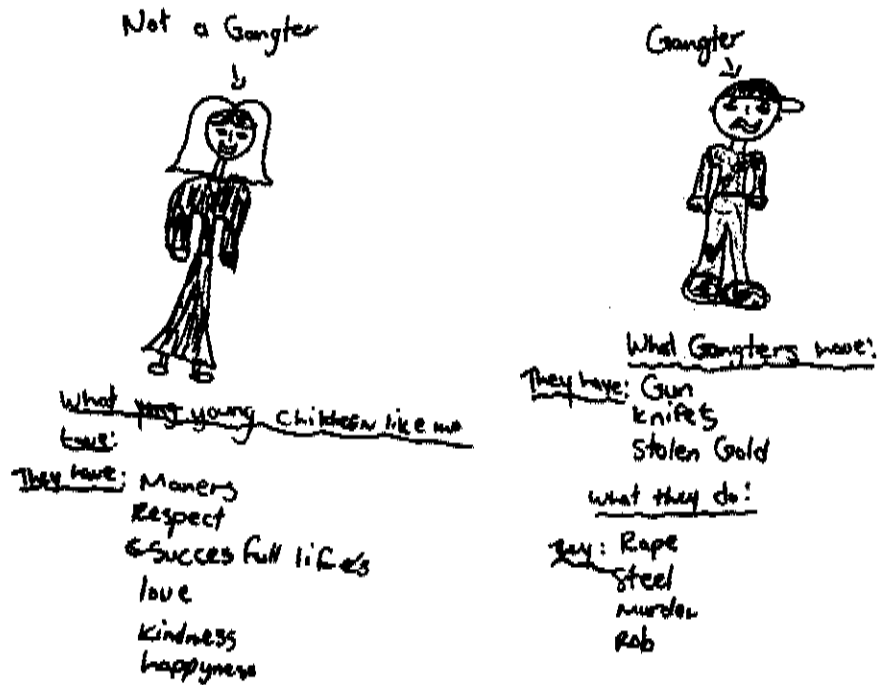 Not a Gangter
What young children like me
have:
They have: Maners
Respect
Succes full life's
love
kindness
happyness
Gangter
What Gangters have:
They have: Gun
knifes
Stolen Gold
what they do:
They: Rape
Steel
Murder
Rob